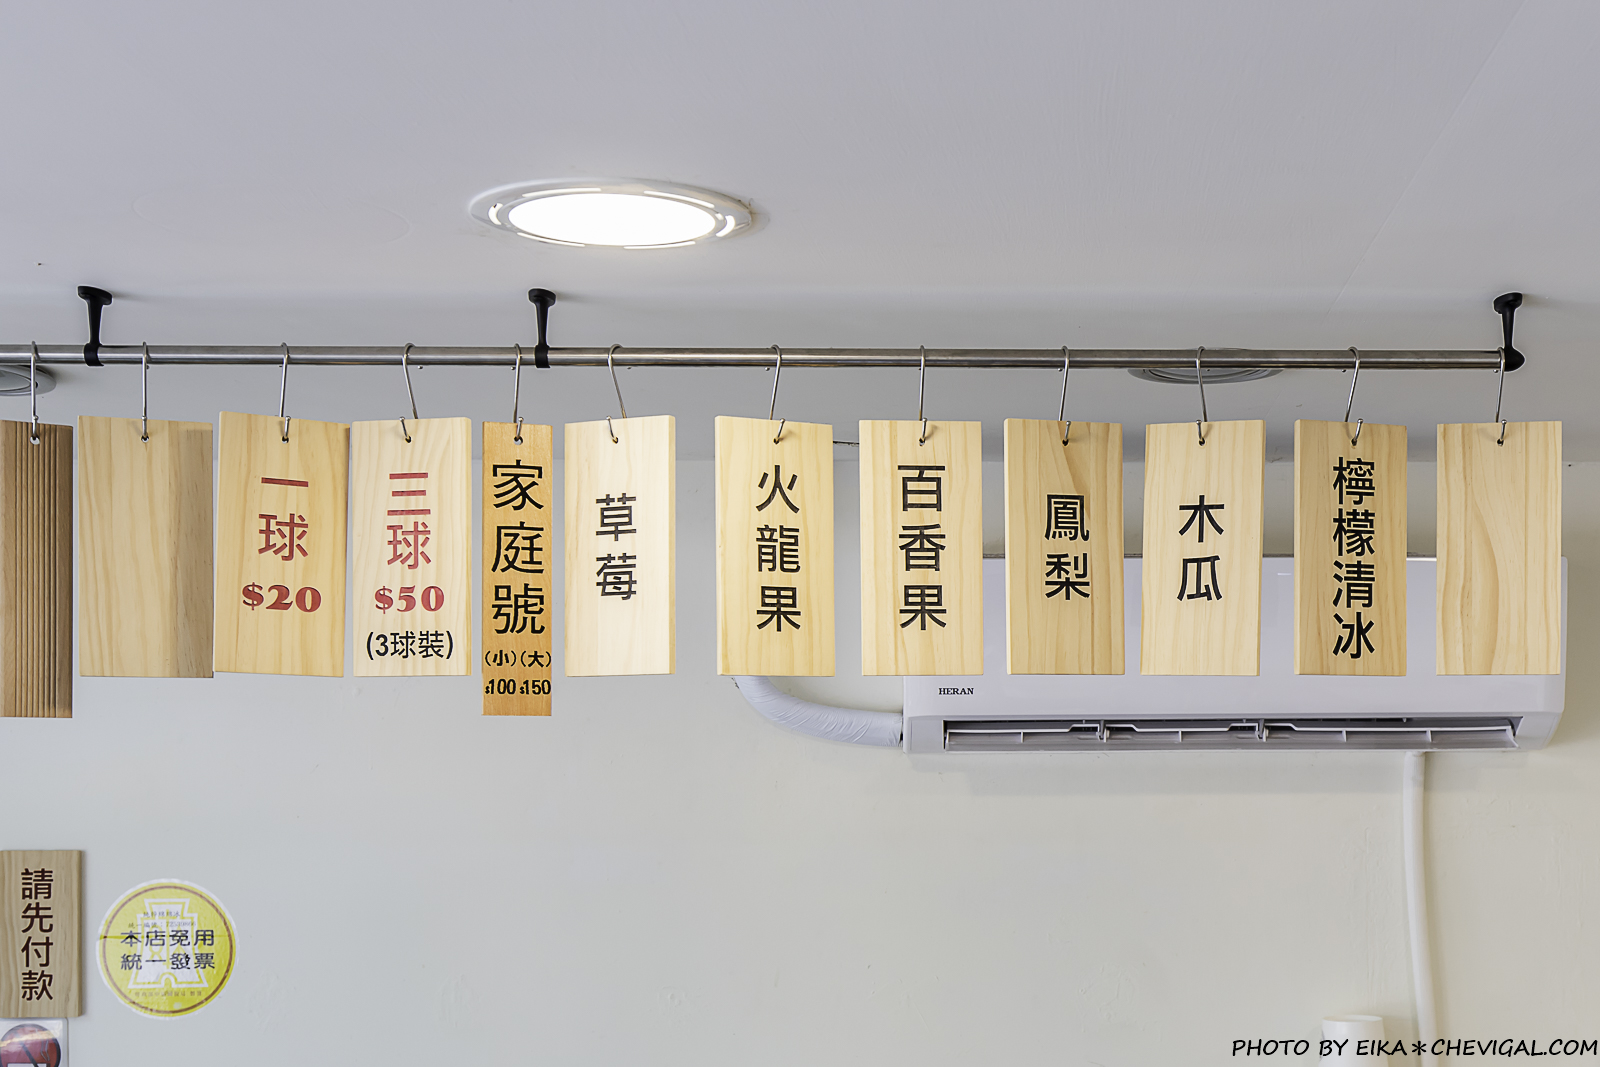 一球
$20
三球
$50
(3球裝)
家庭號
(小)(大)
$100 $150
草莓
火龍果
百香果
鳳梨
木瓜
檸檬清冰
HERAN
請先付款
本店免用
統一發票
PHOTO BY EIKA＊CHEVIGAL.COM